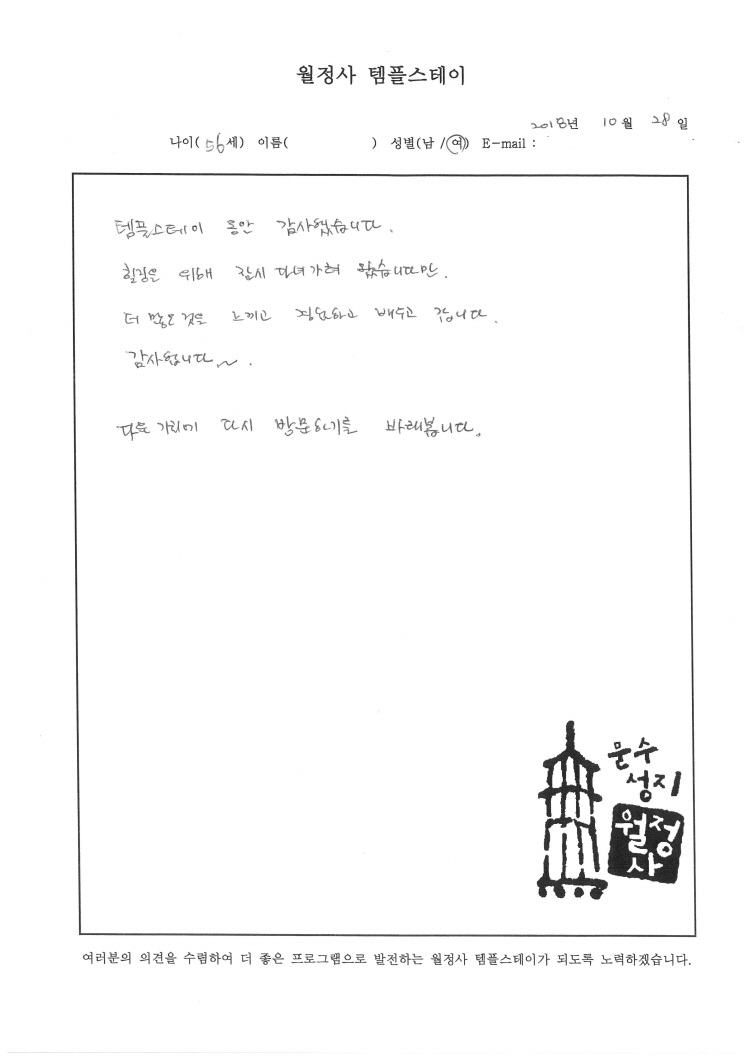 월정사 템플스테이
2018년 10월 28일
나이(56세) 이름( ) 성별(남 /여) E-mail :
템플스테이 동안 감사했습니다.
힐링을 위해 잠시 다녀가려 왔습니다만.
더 많은 것을 느끼고 배우고 갑니다.
감사합니다~.
다음 기회에 다시 방문하기를 바래봅니다.
문수
성지
월정
사
여러분의 의견을 수렴하여 더 좋은 프로그램으로 발전하는 월정사 템플스테이가 되도록 노력하겠습니다.